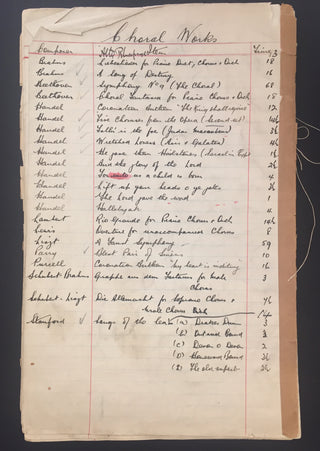 Choral Works
Composer Alto Rhapsodie Times
Brahms for Piano Duet, Chorus & Orch 18
Brahms A Song of Destiny 16
Beethoven Symphony No 9 (The Choral) 68
Beethoven Choral Fantasia for Piano Chorus & Orch 18
Handel Coronation Anthem "The King shall rejoice" 12
Handel Five Choruses from the Opera (Second set)
Handel Fall'n is the foe (Judas Maccabaeus) 3½
Handel Wretched Lovers (Acis & Galatea) 4½
Handel He gave them Hailstones (Israel in Egypt)
Handel And the glory of the Lord 3½
Handel For unto us a child is born 4
Handel Lift up your heads o ye gates 3½
Handel The Lord gave the word 1
Handel Hallelujah 4
Lambert Rio Grande for Piano Chorus & Orch
for unaccompanied Chorus 8
Liszt A Faust Symphony 59
Parry Blest Pair of Sirens 10
Purcell Coronation Anthem "My heart is inditing" 16
Schubert-Brahms Gruppe aus dem Tartarus for male 3
Chorus
Schubert-Liszt Die Allmacht for Soprano Chorus &
male Chorus Orch
Stanford Songs of the Sea (A) Drakes Drum 3
(B) Outward Bound 3
(C) Devon O Devon 2
(D) Homeward Bound 3½
(E) The old superb 3½